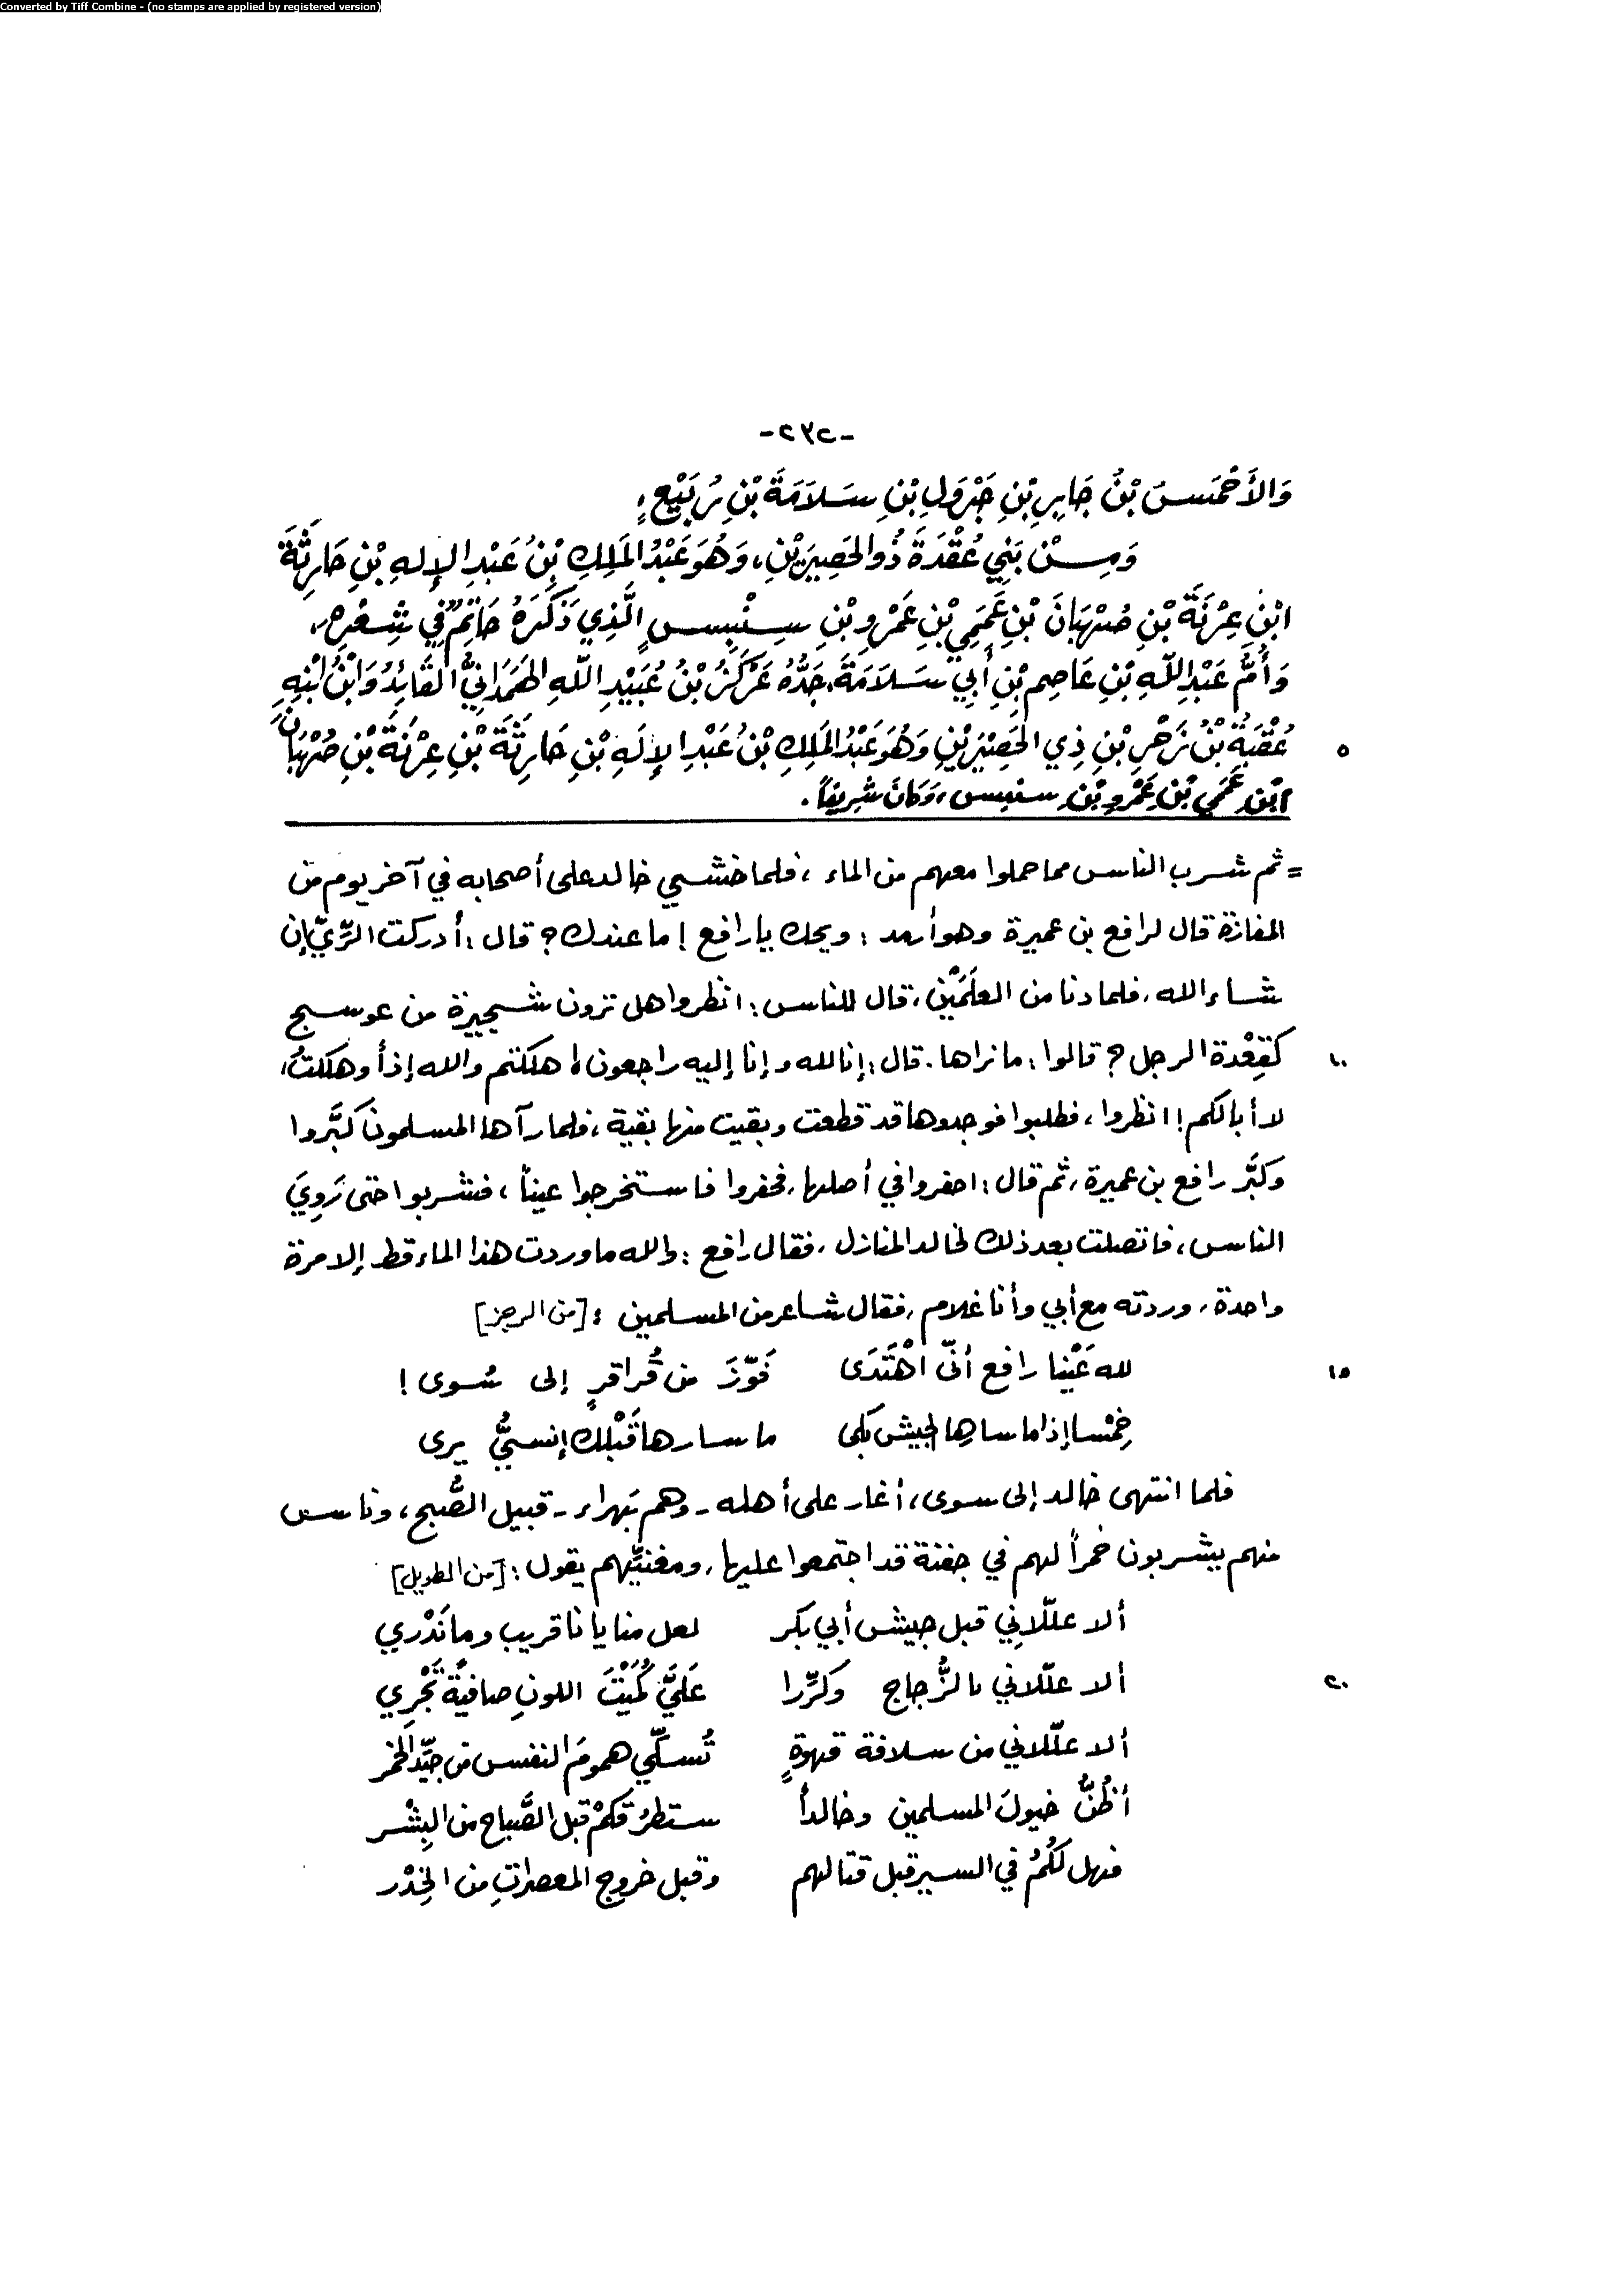 Converted by Tiff Combine - (no stamps are applied by registered version)
-٢٧٢-
وَالأَحْمَسُ بْنُ جَابِرِ بْنِ جَرْوَلِ بْنِ سَلَامَةَ بْنِ رُبَيْعٍ؛
وَمِنْ بَنِي عُقْدَةَ ذُو الحَصِيرَيْنِ، وَهُوَ عَبْدُ المَلِكِ بْنُ عَبْدِ الإلهِ بْنِ حَارِثَةَ
ابْنِ عِرْنَةَ بْنِ صُهْبَانَ بْنِ عَمَمِي بْنِ عَمْرِو بْنِ سِنْبِسٍ الَّذِي ذَكَرَهُ حَاتِمٌ فِي شِعْرِهِ،
وَأُمُّ عَبْدِ اللّهِ بْنِ عَاصِمِ بْنِ أَبِي سَلَامَةَ، جَدُّهُ عَرْكَزُ بْنُ عُبَيْدِ اللّهِ الهَمَدَانِيُّ القَائِدُ وَابْنُ ابْنِهِ
عُقْبَةُ بْنُ زَحْرِ بْنِ ذِي الحَصِيْرَيْنِ وَهُوَ عَبْدُ المَلِكِ بْنُ عَبْدِ الإلَهِ بْنِ حَارِثَةَ بْنِ عِرْنَةَ بْنِ صُهْبَانَ ٥
ابْنِ عَمَمِي بْنِ عَمْرِو بْنِ سنبس، وَكانَ شَرِيفاً.
= ثم شرب الناس مما حملوا معهم من الماء، فلما خشي خالد على أصحابه في آخر يوم من
المفازة قال لرافع بن عميرة وهو أرمد: ويحك يا رافع! ما عندك؟ قال: أدركت الرِّيّ إن
شاء الله، فلما دنا من العلَمَيْن، قال للناس: انظروا هل ترون شجيرة من عوسج
كَقِعْدة الرجل؟ قالوا: ما نراها. قال: إنا لله وإنا إليه راجعون! هلكتم والله إذاً وهلكتُ، ١٠
لا أبالكم! انظروا، فطلبوا فوجدوها قد قطعت وبقيت منها بقية، فلما رآها المسلمون كبَّروا
وكبَّر رافع بن عميرة، ثم قال: احفروا في أصلها، فحفروا فاستخرجوا عيناً، فشربوا حتى رَوِيَ
الناس، فاتصلت بعد ذلك لخالد المنازل، فقال رافع: والله ما وردت هذا الماء قط إلا مرة
واحدة، وردته مع أبي وأنا غلام، فقال شاعر من المسلمين: [من الرجز]
لله عَيْنا رافع أنّى اهْتَدَى فَوّزَ من قُراقرٍ إلى سُوى! ١٥
خِمْسا إذا ما ساها الجيش بكى ما سارها قَبْلك إنسيٌّ يرى
فلما انتهى خالد إلى سوى، أغار على أهله - وهم بَهراء - قبيل الصُّبح، وناس
منهم يشربون خمراً لهم في جفنة قد اجتمعوا عليها، ومغنيِّهم يقول: [من الطويل]
ألا علّلاني قبل جيش أبي بكر لعل منايانا قريب وما نَدْري
ألا علّلاني بالزُّجاج وكرِّرا عَلَيَّ كُمَيْتَ اللونِ صافيةً تَجْرِي ٢٠
ألا علّلاني من سلافة قهوةٍ تُسلّي همومَ النفس من جيِّد الخمر
أظُنُّ خيولَ المسلمين وخالداً ستطرُقكمْ قبل الصَّباح من البِشْر
فهل لكُمُ في السير قبل قتالهم وقبل خروج المعصراتِ من الخِدْر